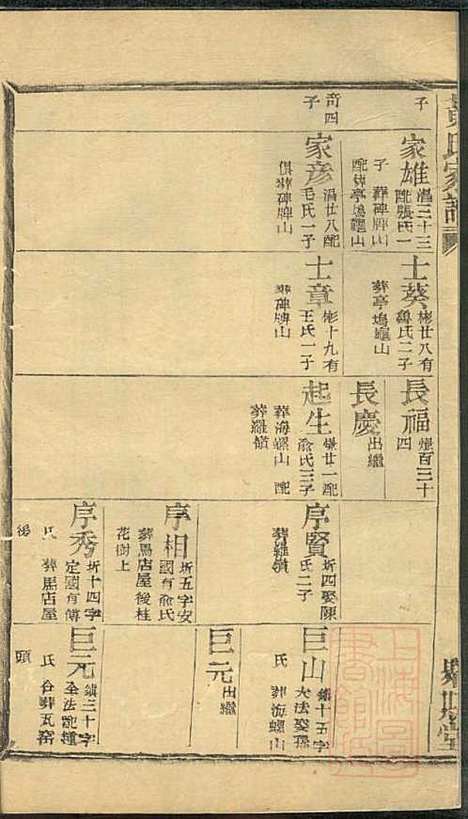 子
家雄
溫三十三
配張氏一
子葬碑牌山
配葬亭塢龜山
士葵
彬廿八有
魯氏二子
葬亭塢龜山
長福
四
長慶
出繼
奇四
子
家彥
溫廿八配
毛氏一子
俱葬碑牌山
士章
彬十九有
王氏一子
葬碑牌山
起生
俞氏三子
葬海螺山 配
葬羅嶺
序賢
圻四娶陳
氏二子
葬羅嶺
巨山
鎮十五字
大法娶孫
氏
葬海螺山
序相
圻五字安
國有俞氏
葬馬店屋後桂
花樹上
巨元
出繼
序秀
圻十四字
定國有傅
氏 葬馬店屋
後
巨元
鎮三十字
全法配
氏 合葬瓦窑
頭
氏家譜
堂